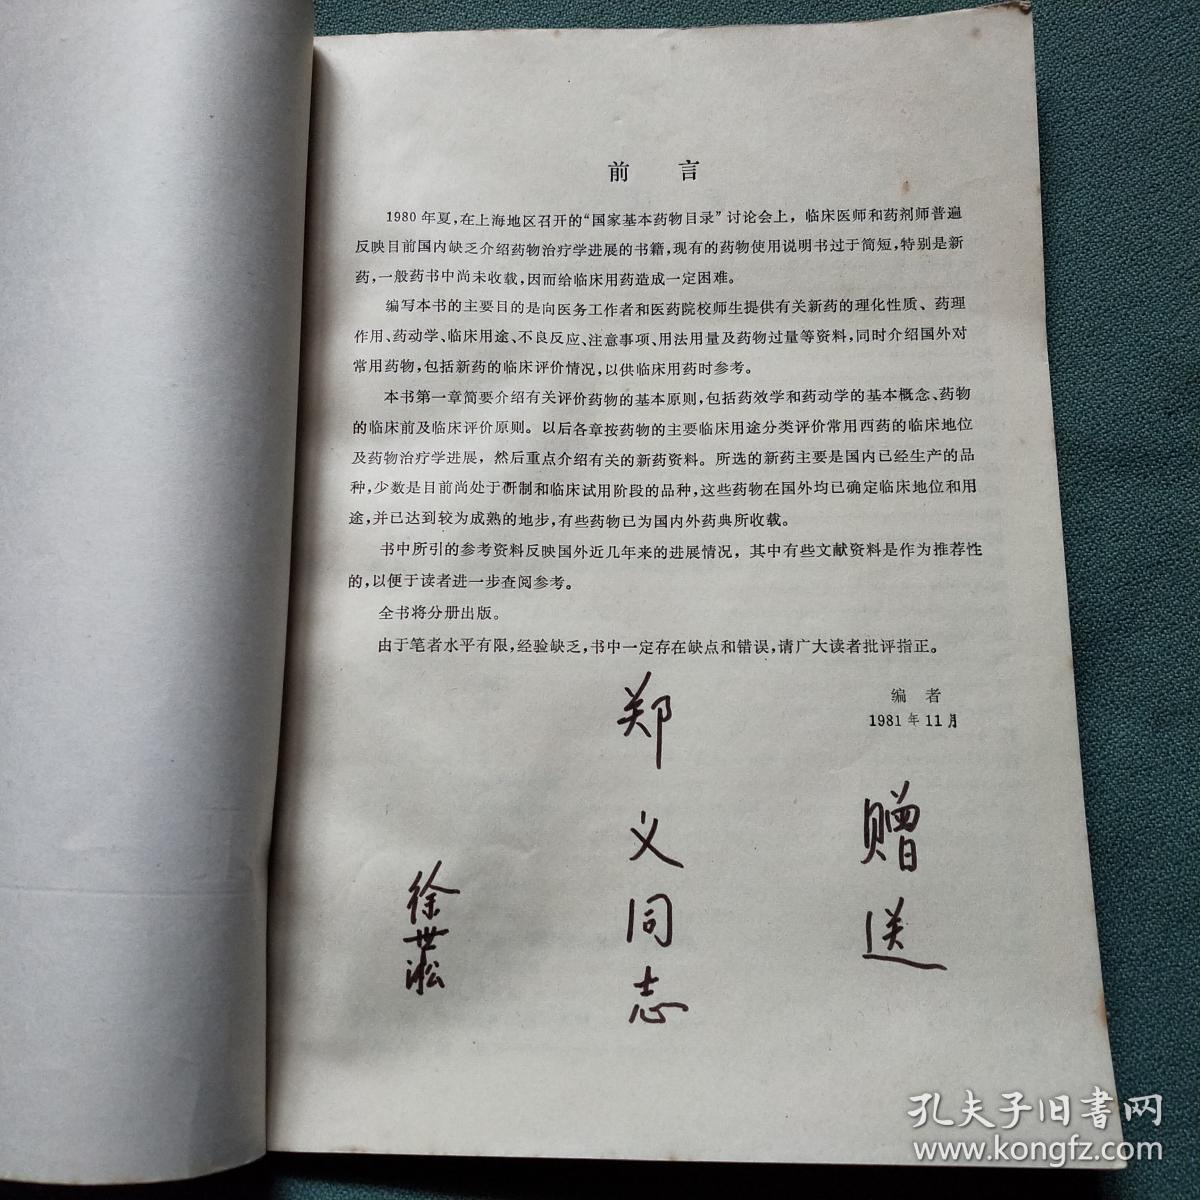 前言
1980年夏,在上海地区召开的“国家基本药物目录”讨论会上，临床医师和药剂师普遍
反映目前国内缺乏介绍药物治疗学进展的书籍,现有的药物使用说明书过于简短,特别是新
药,一般药书中尚未收载,因而给临床用药造成一定困难。
编写本书的主要目的是向医务工作者和医药院校师生提供有关新药的理化性质、药理
作用、药动学、临床用途、不良反应、注意事项、用法用量及药物过量等资料,同时介绍国外对
常用药物,包括新药的临床评价情况,以供临床用药时参考。
本书第一章简要介绍有关评价药物的基本原则,包括药效学和药动学的基本概念、药物
的临床前及临床评价原则。以后各章按药物的主要临床用途分类评价常用西药的临床地位
及药物治疗学进展，然后重点介绍有关的新药资料。所选的新药主要是国内已经生产的品
种,少数是目前尚处于研制和临床试用阶段的品种,这些药物在国外均已确定临床地位和用
途,并已达到较为成熟的地步,有些药物已为国内外药典所收载。
书中所引的参考资料反映国外近几年来的进展情况，其中有些文献资料是作为推荐性
的,以便于读者进一步查阅参考。
全书将分册出版。
由于笔者水平有限,经验缺乏,书中一定存在缺点和错误,请广大读者批评指正。
编者
1981年11月
赠送
郑义同志
徐世淞
孔夫子旧书网
www.kongfz.com